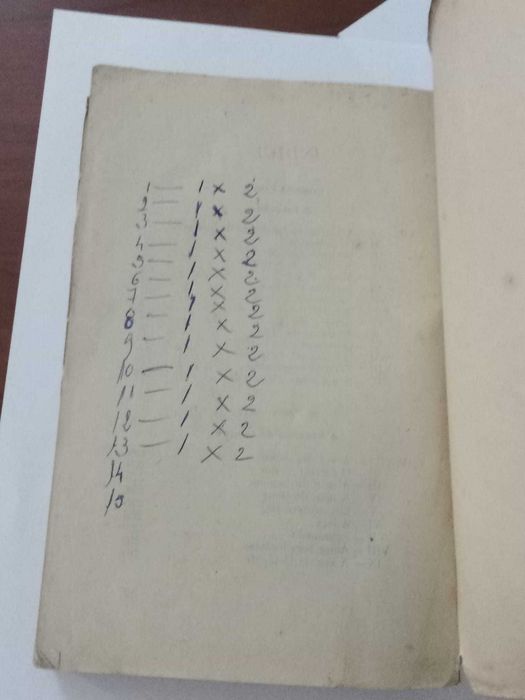 1 — 1 x 2
2 — 1 x 2
3 — 1 x 2
4 — 1 x 2
5 — 1 x 2
6 — 1 x 2
7 — 1 x 2
8 — 1 x 2
9 — 1 x 2
10 — 1 x 2
11 — 1 x 2
12 — 1 x 2
13 — 1 x 2
14
15